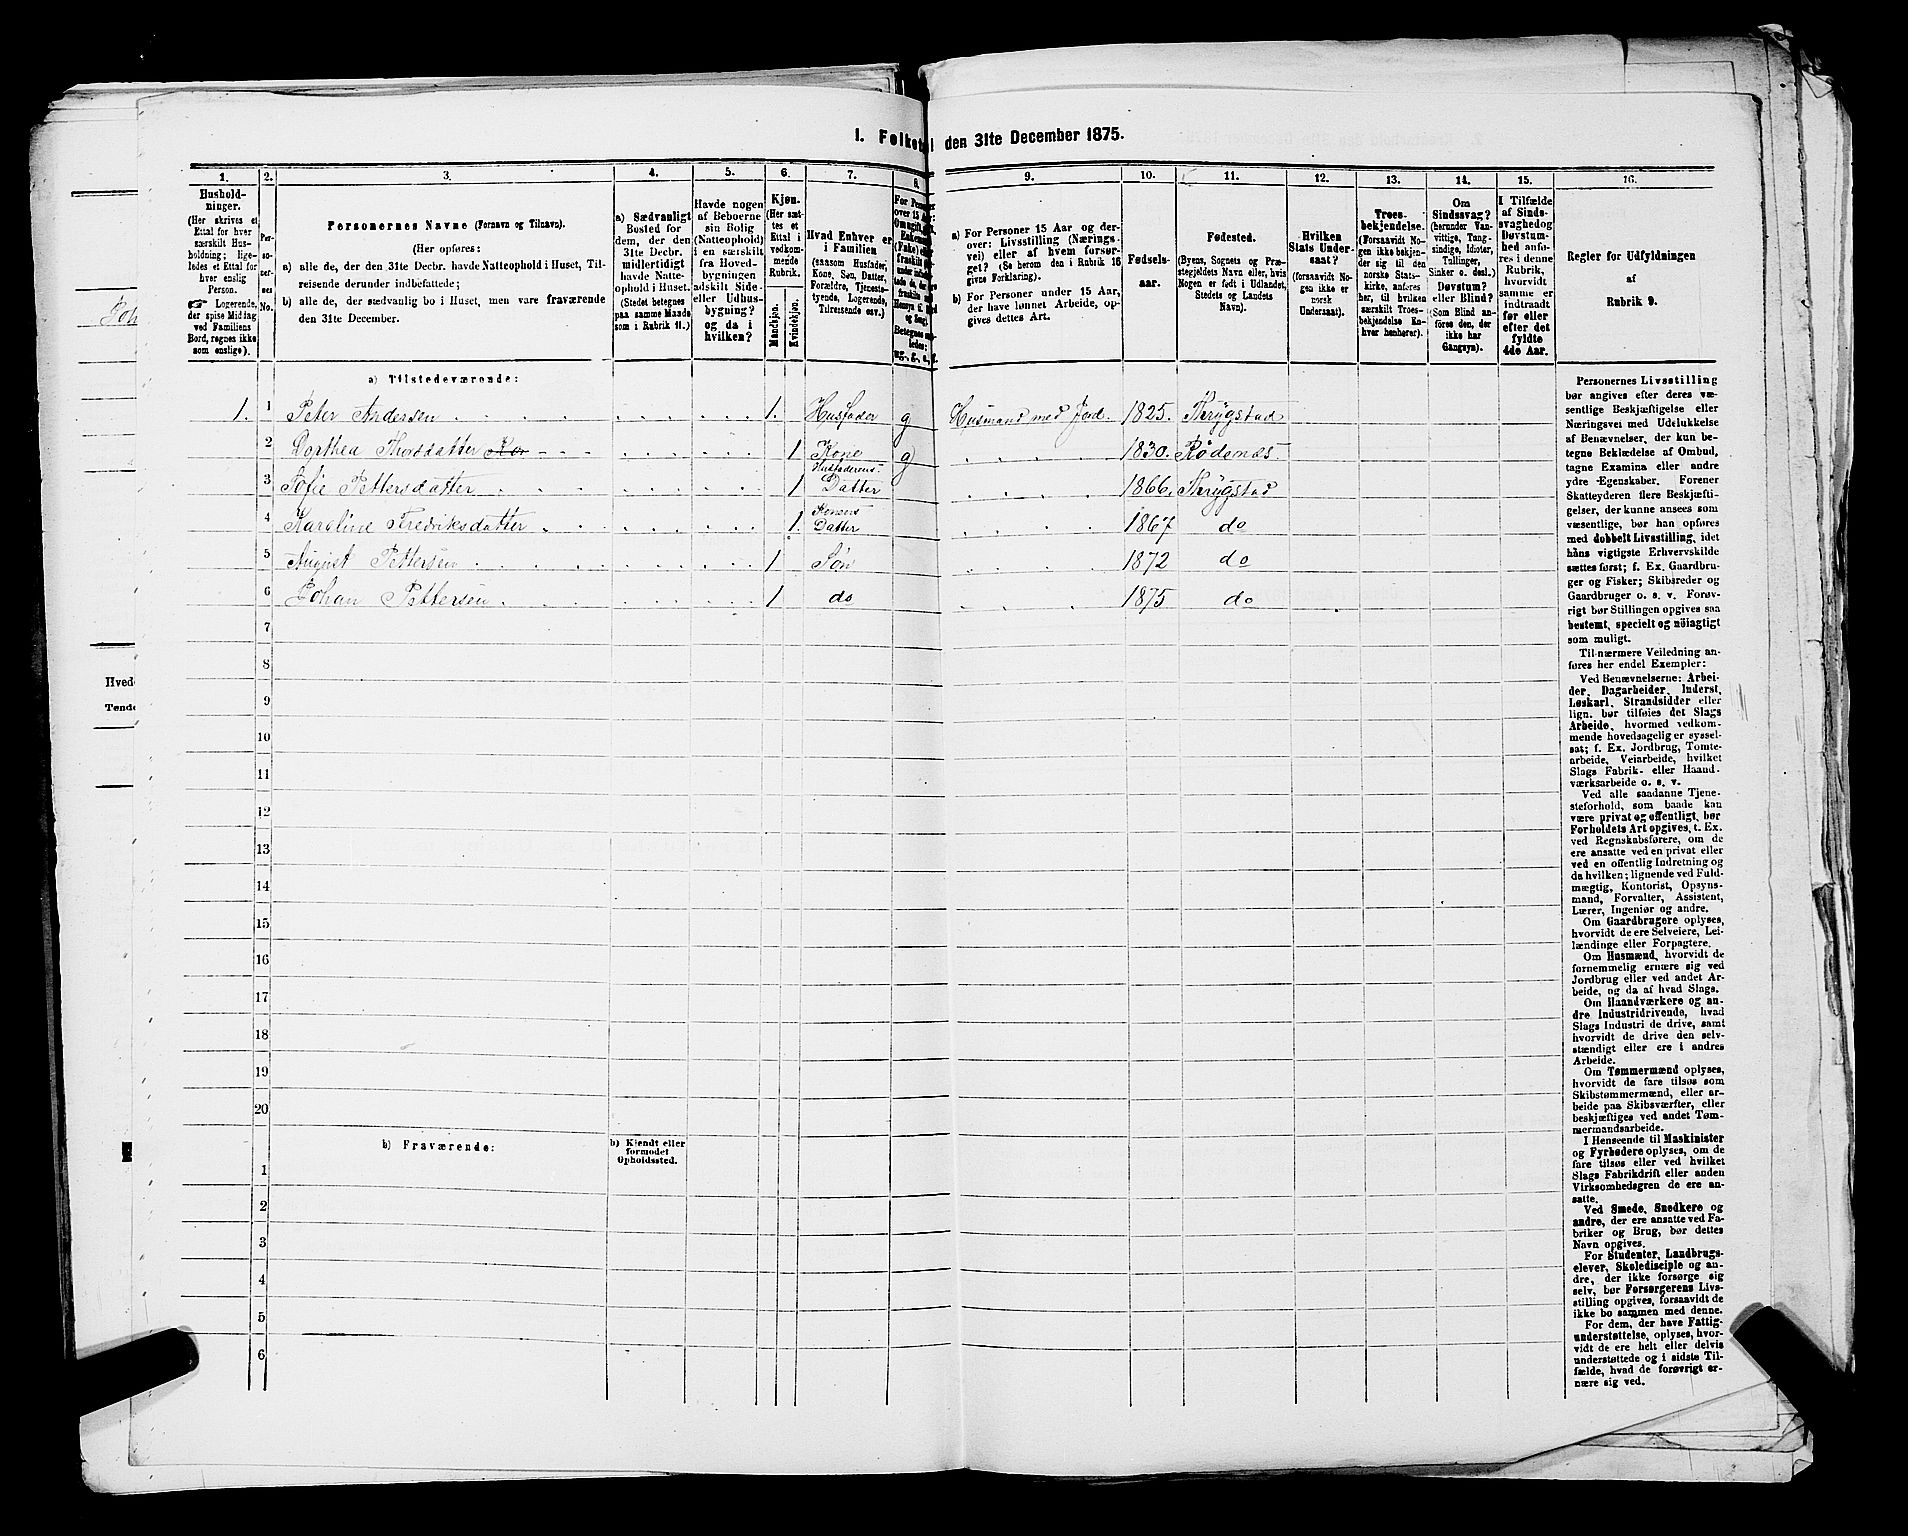 1. Folketal den 31te December 1875.
1. 2. 3. 4. 5. 6. 7. 8. 9. 10. 11. 12. 13. 14. 15. 16.
Hushold-
ninger.
(Her skrives et
Ettal for hver
særskilt Hus-
holdning; lige-
ledes et Ettal for
hver enslig
Person.
☛ Logerende,
der spise Middag
ved Familiens
Bord, regnes ikke
som enslige).
Per-
so-
ner-
nes
No.
Personernes Navne (Fornavn og Tilnavn).
(Her opføres:
a) alle de, der den 31te Decbr. havde Natteophold i Huset, Til-
reisende derunder indbefattede;
b) alle de, der sædvanlig bo i Huset, men vare fraværende
den 31te December.
a) Sædvanligt
Bosted for
dem, der den
31te Decbr.
midlertidigt
havde Natte-
ophold i Huset.
(Stedet betegnes
paa samme Maade
som i Rubrik 11.)
Havde nogen
af Beboerne
sin Bolig
(Natteophold)
i en særskilt
fra Hoved-
bygningen
adskilt Side-
eller Udhus-
bygning?
og da i
hvilken?
Kjøn.
(Her sæt-
tes et
Ettal i
vedkom-
mende
Rubrik.
Mandkjøn.
Kvindekjøn.
Hvad Enhver er
i Familien
(saasom Husfader,
Kone, Søn, Datter,
Forældre, Tjeneste-
tyende, Logerende,
Tilreisende osv.)
For Personer
over 15 Aar:
a) For Personer 15 Aar og der-
over: Livsstilling (Nærings-
vei) eller af hvem forsør-
get? (Se herom den i Rubrik 16
givne Forklaring).
b) For Personer under 15 Aar,
der have lønnet Arbeide, op-
gives dettes Art.
Fødsels-
aar.
Fødested.
(Byens, Sognets og Præ-
stegjeldets Navn eller, hvis
Nogen er født i Udlandet,
Stedets og Landets
Navn).
Hvilken
Stats Under-
saat?
(forsaavidt No-
gen ikke er
norsk
Undersaat).
Troes-
bekjendelse.
(Forsaavidt No-
gen ikke bekjen-
der sig til den
norske Stats-
kirke, anføres
her, til hvilken
særskilt Troes-
bekjendelse En-
hver henhører).
Om
Sindssvag?
(herunder Van-
vittige, Tung-
sindige, Idioter,
Tullinger,
Sinker o. desl.)
Døvstum?
eller Blind?
(Som Blind an-
føres den, der
ikke har
Gangsyn).
I Tilfælde
af Sinds-
svaghed og
Døvstum-
hed anfø-
res i denne
Rubrik,
hvorvidt
samme er
indtraadt
før eller
efter det
fyldte
4de Aar.
Regler for Udfyldningen
af
Rubrik 9.
a) Tilstedeværende:
1. 1 Peter Andersen 1. Husfader g Husmand med Jord. 1825. Thrygstad
2 Dorthea Thorsdatter 1 Kone g 1830. Rødenæs
3 Sofie Pettersdatter 1 Husfaderens Datter 1866. Thrygstad
4 Karoline Fredriksdatter 1. Konens Datter 1867 do
5 August Pettersen 1 Søn 1872 do
6 Johan Pettersen 1 do 1875 do
7
8
9
10
11
12
13
14
15
16
17
18
19
20
b) Fraværende:
b) Kjendt eller
formodet
Opholdssted.
1
2
3
4
5
6
Personernes Livsstilling
bør angives efter deres væ-
sentlige Beskjæftigelse eller
Næringsvei med Udelukkelse
af Benævnelser, der kun be-
tegne Beklædelse af Ombud,
tagne Examina eller andre
ydre Egenskaber. Forener
Skatteyderen flere Beskjæfti-
gelser, der kunne ansees som
væsentlige, bør han opføres
med dobbelt Livsstilling, idet
hans vigtigste Erhvervskilde
sættes først; f. Ex. Gaardbru-
ger og Fisker; Skibsreder og
Gaardbruger o. s. v. Forøv-
rigt bør Stillingen opgives saa
bestemt, specielt og nøiagtigt
som muligt.
Til nærmere Veiledning an-
føres her endel Exempler:
Ved Benævnelserne: Arbei-
der, Dagarbeider, Inderst,
Løskarl, Strandsidder eller
lign. bør tilføies det Slags
Arbeide, hvormed vedkom-
mende hovedsagelig er syssel-
sat; f. Ex. Jordbrug, Tomte-
arbeide, Veiarbeide, hvilket
Slags Fabrik- eller Haand-
værksarbeide o. s. v.
Ved alle saadanne Tjene-
steforhold, som baade kan
være privat og offentligt, bør
Forholdets Art opgives, t. Ex.
ved Regnskabsførere, om de
ere ansatte ved en privat eller
ved en offentlig Indretning og
da hvilken; lignende ved Fuld-
mægtig, Kontorist, Opsyns-
mand, Forvalter, Assistent,
Lærer, Ingeniør og andre.
Om Gaardbrugere oplyses,
hvorvidt de ere Selveiere, Lei-
lændinge eller Forpagtere.
Om Husmænd, hvorvidt de
fornemmelig ernære sig ved
Jordbrug eller ved andet Ar-
beide, og da af hvad Slags.
Om Haandværkere og an-
dre Industridrivende, hvad
Slags Industri de drive, samt
hvorvidt de drive den selv-
stændigt eller ere i andres
Arbeide.
Om Tømmermænd oplyses,
hvorvidt de fare tilsøs som
Skibstømmermænd, eller ar-
beide paa Skibsværfter, eller
beskjæftiges ved andet Tøm-
mermandsarbeide.
I Henseende til Maskinister
og Fyrbødere oplyses, om de
fare tilsøs eller ved hvilket
Slags Fabrikdrift eller anden
Virksomhedsgren de ere an-
satte.
Ved Smede, Snedkere og
andre, der ere ansatte ved Fa-
briker og Brug, bør dettes
Navn opgives.
For Studenter, Landbrugs-
elever, Skoledisciple og an-
dre, der ikke forsørge sig
selv, bør Forsørgerens Livs-
stilling opgives, forsaavidt de
ikke bo sammen med denne.
For dem, der have Fattig-
understøttelse, oplyses, hvor-
vidt de ere helt eller delvis
understøttede og i sidste Til-
fælde, hvad de forøvrigt er-
nære sig ved.
Joh
Hvede
Tønde